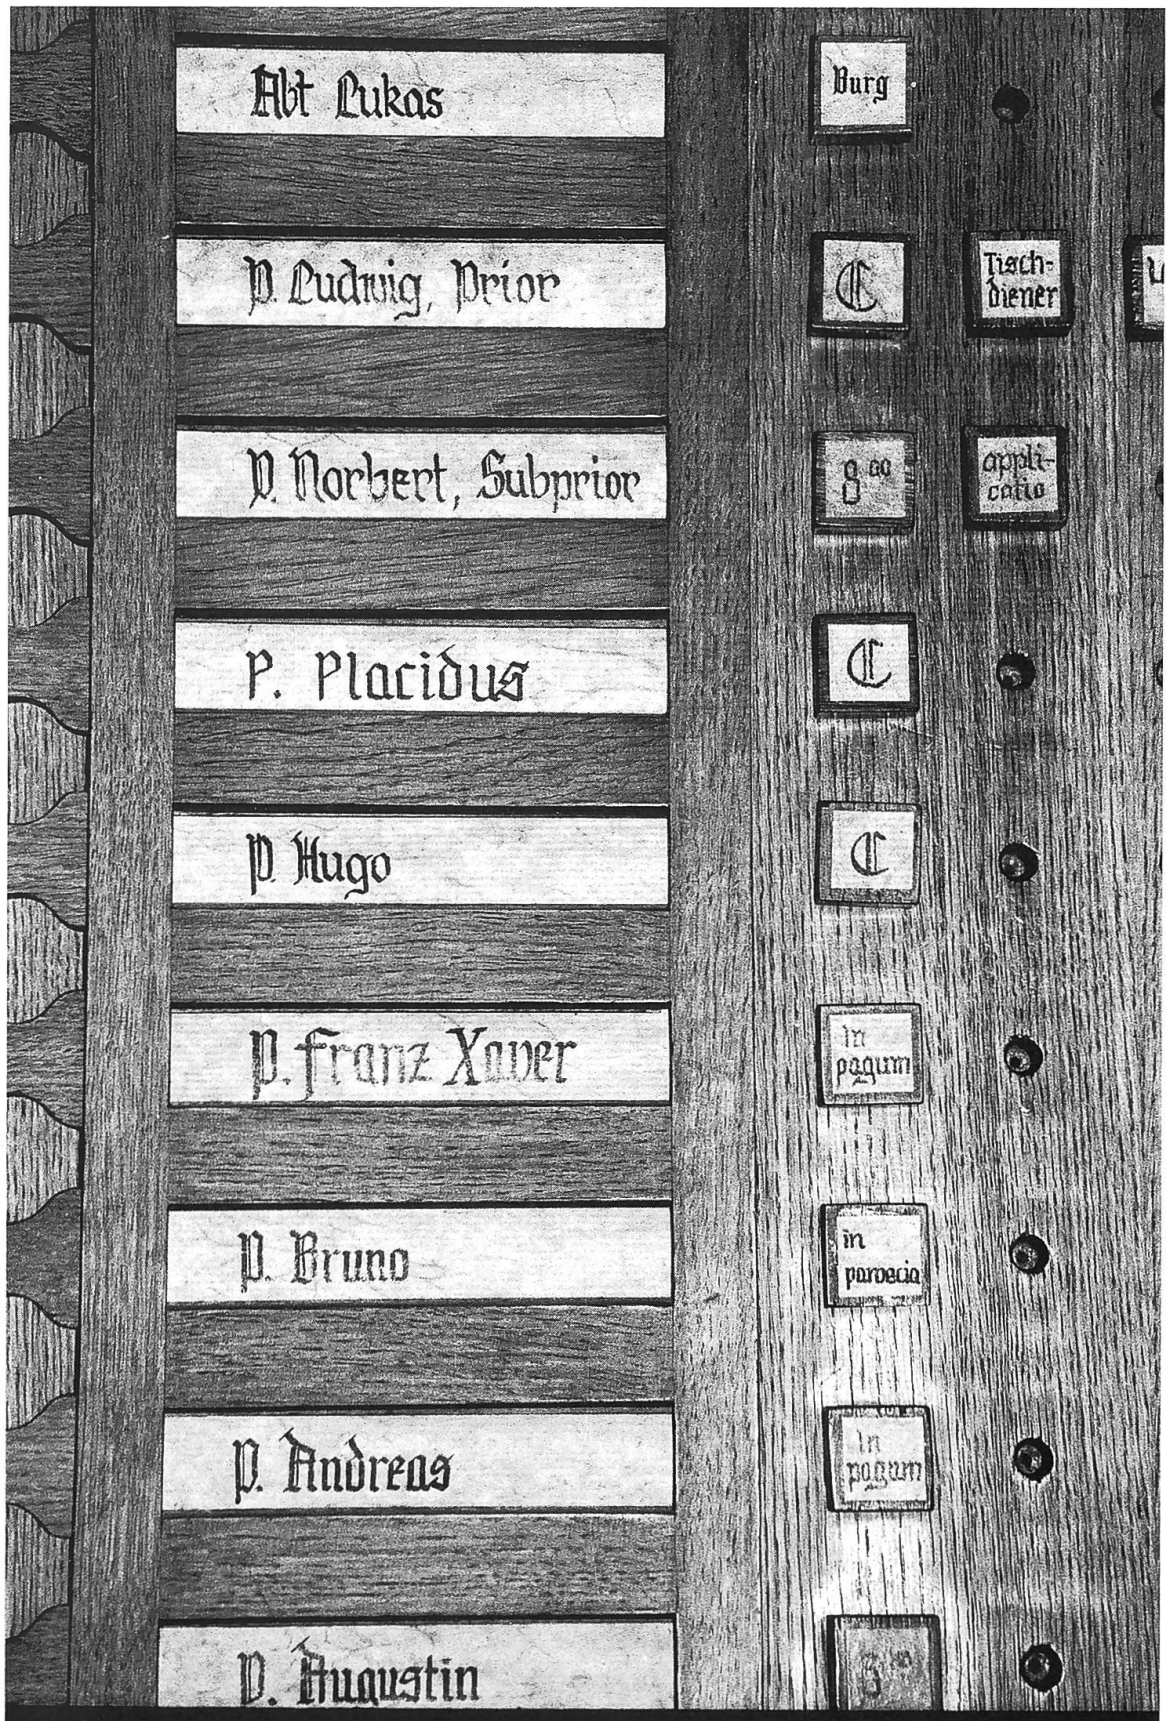 Abt Lukas Burg
P. Ludwig, Prior ℭ Tisch-
diener
P. Norbert, Subprior 8⁰⁰ appli-
catio
P. Placidus ℭ
P. Hugo ℭ
P. Franz Xaver in
pagum
P. Bruno in
paroecia
P. Andreas in
pagum
P. Augustin